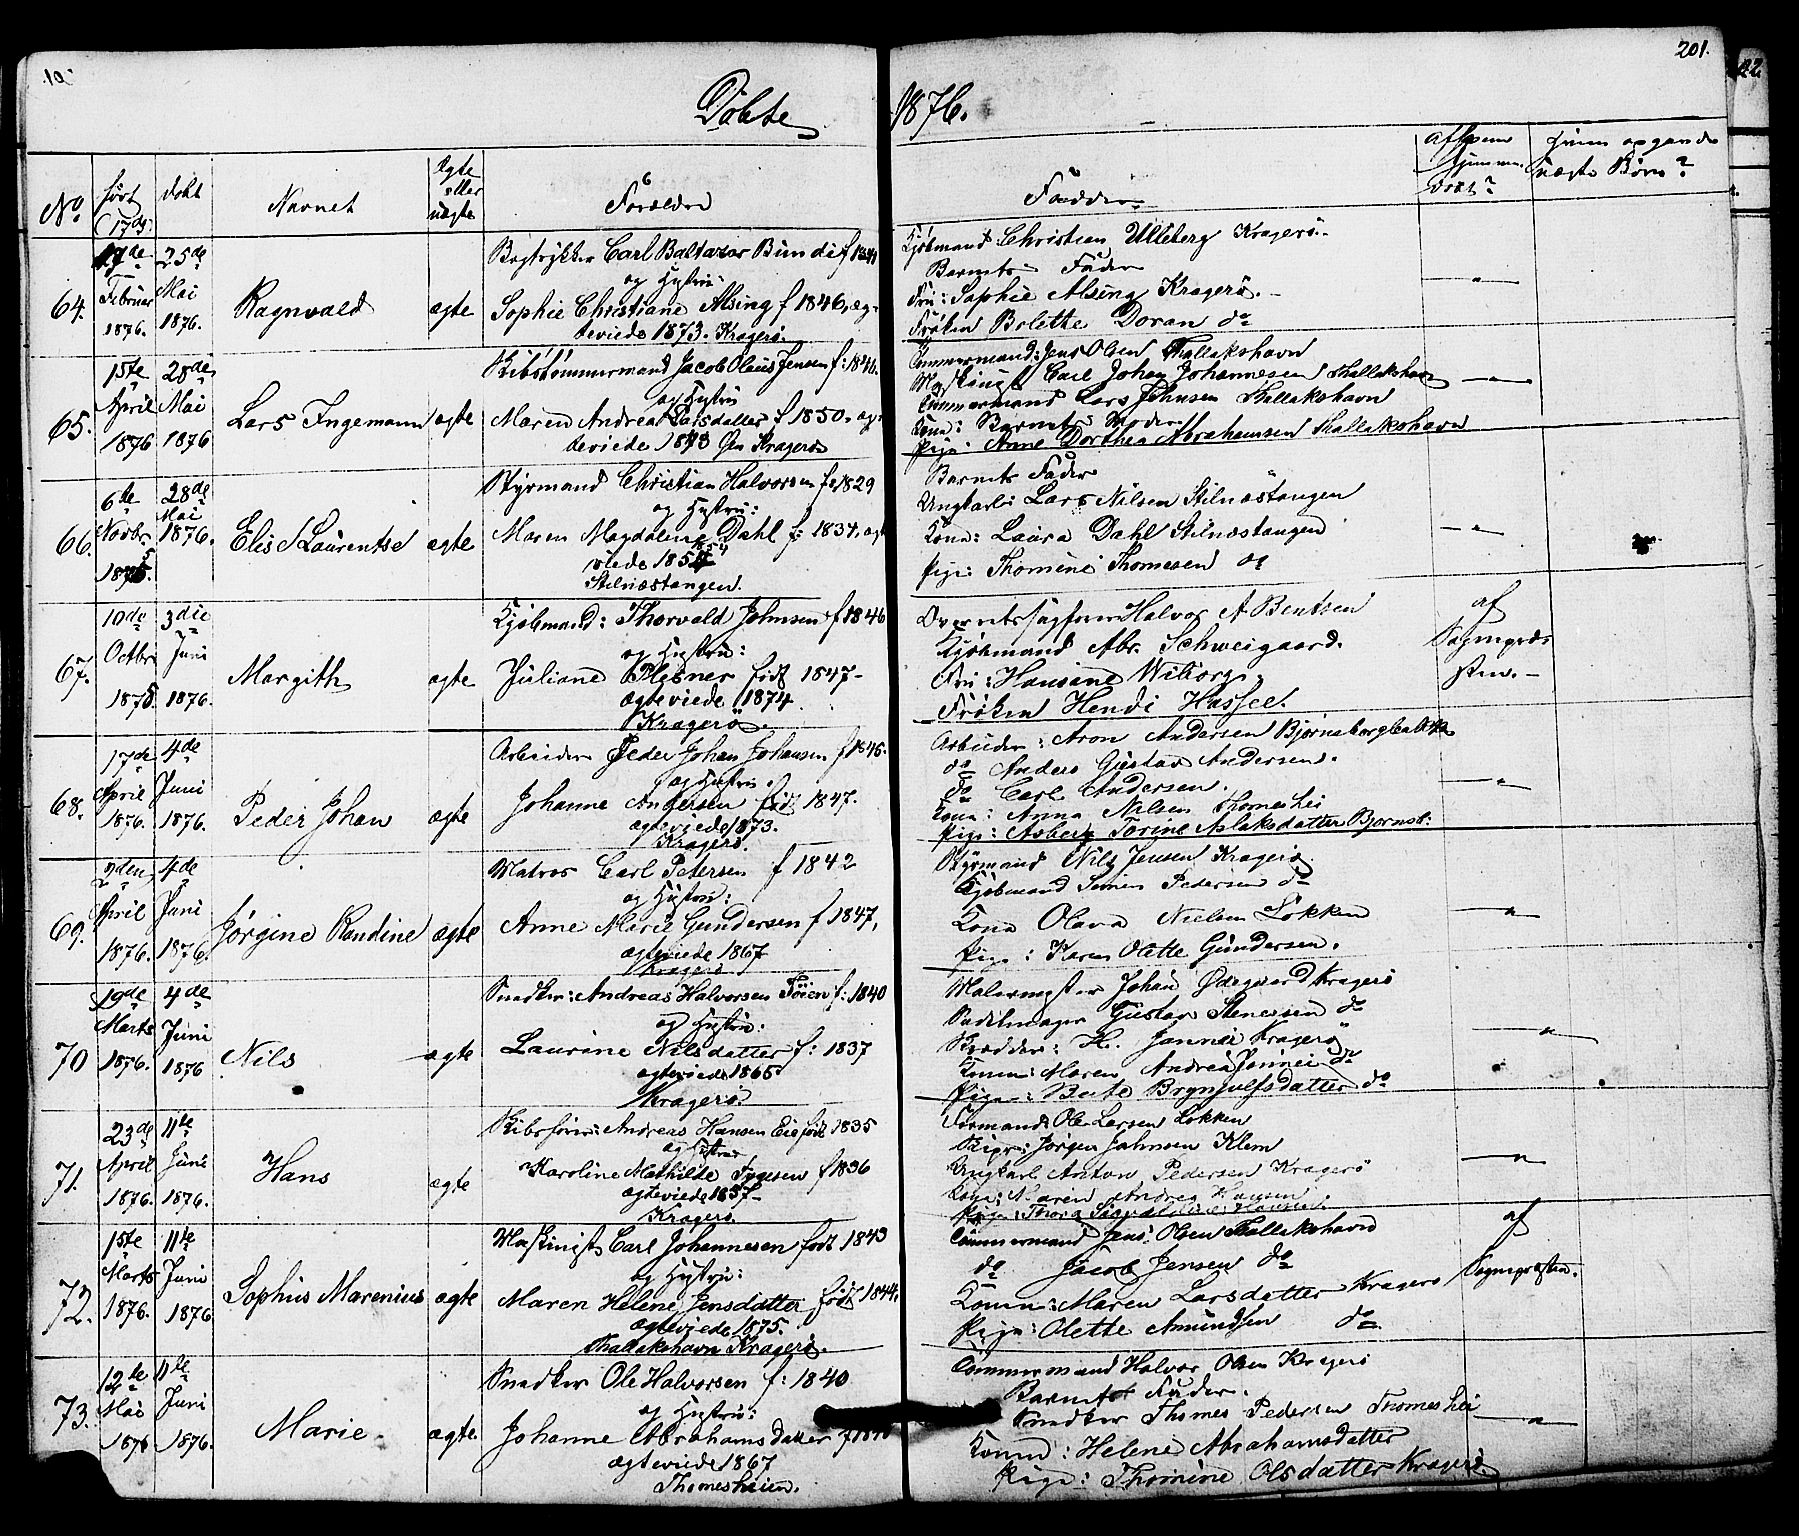 201.
Døbte 1876.
No.
født
døbt
Navnet
Ægte eller uægte
Forældre
Faddere
64.
17de Februar 1876.
25de Mai 1876.
Ragnvald
ægte
Bogtrykker Carl Baltazar Bundi f 1841
og Hustru:
Sophie Christiane Alsing f 1846, æg-
teviede 1873. Kragerø.
Kjøbmand: Christian Ulleberg Kragerø.
Barnets Fader
Fru: Sophie Alsing Kragerø.
Frøken Bolette Doran do
65.
15te April 1876
28de Mai 1876
Lars Ingemann
ægte
Skibstømmermand Jacob Olaus Jensen f: 1846.
og Hustru
Maren Andrea Larsdatter f 1850, æg-
teviede 1873 Kragerø
Tømmermand: Jens Olsen Thallakshavn
Maskinist Carl Johan Johannesen Thallakshavn
Tømmermand Lars Johnsen Thallakshavn
Kona: Barnets Moder
Pige: Anne Dorthea Abrahamsen Thallakshavn
66.
6te Novbr. 1875.
28de Mai 1876.
Elise Laurentse
ægte
Styrmand Christian Halvorsen f: 1829
og Hustru:
Maren Magdalene Dahl f: 1834, ægt
viede 1854
Stilnæstangen.
Barnets Fader
Ungkarl: Lars Nilsen Stilnæstangen
Kona: Laura Dahl Stilnæstangen
Pige: Thomine Thomesen do
67.
10de Octbr. 1875
3die Juni 1876.
Margith
ægte
Kjøbmand: Thorvald Johnsen f 1846
og Hustru:
Juliane Plesner født 1847-
ægteviede 1874
Kragerø.
Overretssagfører Halvor A Bentsen
Kjøbmand Abr. Schweigaard.
Fru: Hansine Wiborg.
Frøken Hendi Hassel.
af Sognepræsten.
68.
17de April 1876.
4de Juni 1876.
Peder Johan
ægte
Arbeider Peder Johan Johansen f 1846.
og Hustru.
Johanne Andersen født 1847.
ægteviede 1873.
Kragerø.
Arbeider: Aron Andersen Bjørnsborgbakken
do Anders Gustav Andersen.
do Carl Andersen.
Kona: Anna Nilsen Thomeshei
Pige: Asberg Torine Aslaksdatter Bjornsb:
69.
2den April 1876.
4de Juni 1876.
Jørgine Randine
ægte
Matros Carl Petersen f 1842
og Hustru:
Anne Marie Gundersen f 1847,
ægteviede 1867
Kragerø
Styrmand Nils Jensen Kragerø
Kjøbmand Simon Pedersen do
Kona Olava Nielsen Løkken
Pige: Karen Olette Gundersen.
70
19de Marts 1876.
4de Juni 1876
Nils
ægte
Snedker: Andreas Halvorsen Føien f: 1840
og Hustru:
Laurine Nilsdatter f: 1837
ægteviede 1865
Kragerø.
Malermester Johan Ødegaard Kragerø
Sadelmager Gustav Stenersen do
Skrædder: H. Jannei Kragerø
Kona: Maren Andrea Jannei do
Pige: Berte Brynjulfsdatter do
71.
23de April 1876.
11te Juni 1876.
Hans
ægte
Skibsfører: Andreas Hansen Eie født 1835
og Hustru
Karoline Mathilde Tygesen f 1836
ægteviede 1857
Kragerø.
Formand: Ole Larsen Løkken
Skipr: Jørgen Jahnsen Klem
Ungkarl Anton Pedersen Kragerø
Kone: Maren Andrea Hansen
Pige: Thora
72.
15te Marts 1876.
11te Juni 1876
Sophus Marenius
ægte
Maskinist Carl Johannesen født 1843
og Hustru:
Maren Helene Jensdatter født 1844.
ægteviede 1875.
Thallakshavn Kragerø.
Tømmermand Jens Olsen Thallakshavn
do Jacob Jensen do
Konen: Maren Larsdatter Kragerø
Pige: Olette Amundsen do
af Sognepræsten.
73.
12te Mai 1876
11te Juni 1876.
Marie
ægte
Snedker Ole Halvorsen f: 1840
og Hustru:
Johanne Abrahamsdatter f 1840
ægteviede 1867
Thomesheien.
Tømmermand Halvor Olsen Kragerø
Barnets Fader.
Snedker Thomes Pedersen Thomeshei
Kona: Helene Abrahamsdatter
Pige: Thomine Olsdatter Kragerø